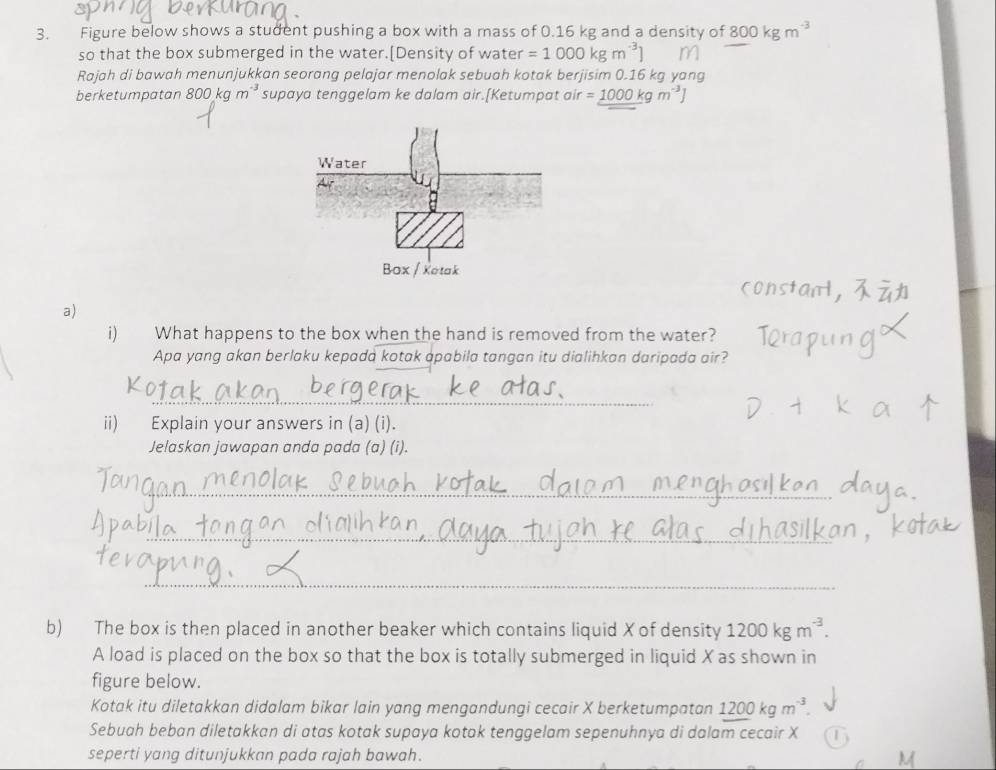 spring berkurang.
3. Figure below shows a student pushing a box with a mass of 0.16 kg and a density of 800 kg m⁻³
so that the box submerged in the water.[Density of water = 1 000 kg m⁻³] m
Rajah di bawah menunjukkan seorang pelajar menolak sebuah kotak berjisim 0.16 kg yang
berketumpatan 800 kg m⁻³ supaya tenggelam ke dalam air.[Ketumpat air = 1000 kg m⁻³]
Water
Air
Box / Kotak
constant, 不动
a)
i) What happens to the box when the hand is removed from the water? Terapung
Apa yang akan berlaku kepada kotak apabila tangan itu dialihkan daripada air?
Kotak akan bergerak ke atas.
D. t k a ↑
ii) Explain your answers in (a) (i).
Jelaskan jawapan anda pada (a) (i).
Tangan menolak sebuah kotak dalam menghasilkan daya.
Apabila tangan dialihkan, daya tujah ke atas dihasilkan, kotak
terapung.
b) The box is then placed in another beaker which contains liquid X of density 1200 kg m⁻³.
A load is placed on the box so that the box is totally submerged in liquid X as shown in
figure below.
Kotak itu diletakkan didalam bikar lain yang mengandungi cecair X berketumpatan 1200 kg m⁻³. ↓
Sebuah beban diletakkan di atas kotak supaya kotak tenggelam sepenuhnya di dalam cecair X ①
seperti yang ditunjukkan pada rajah bawah. M